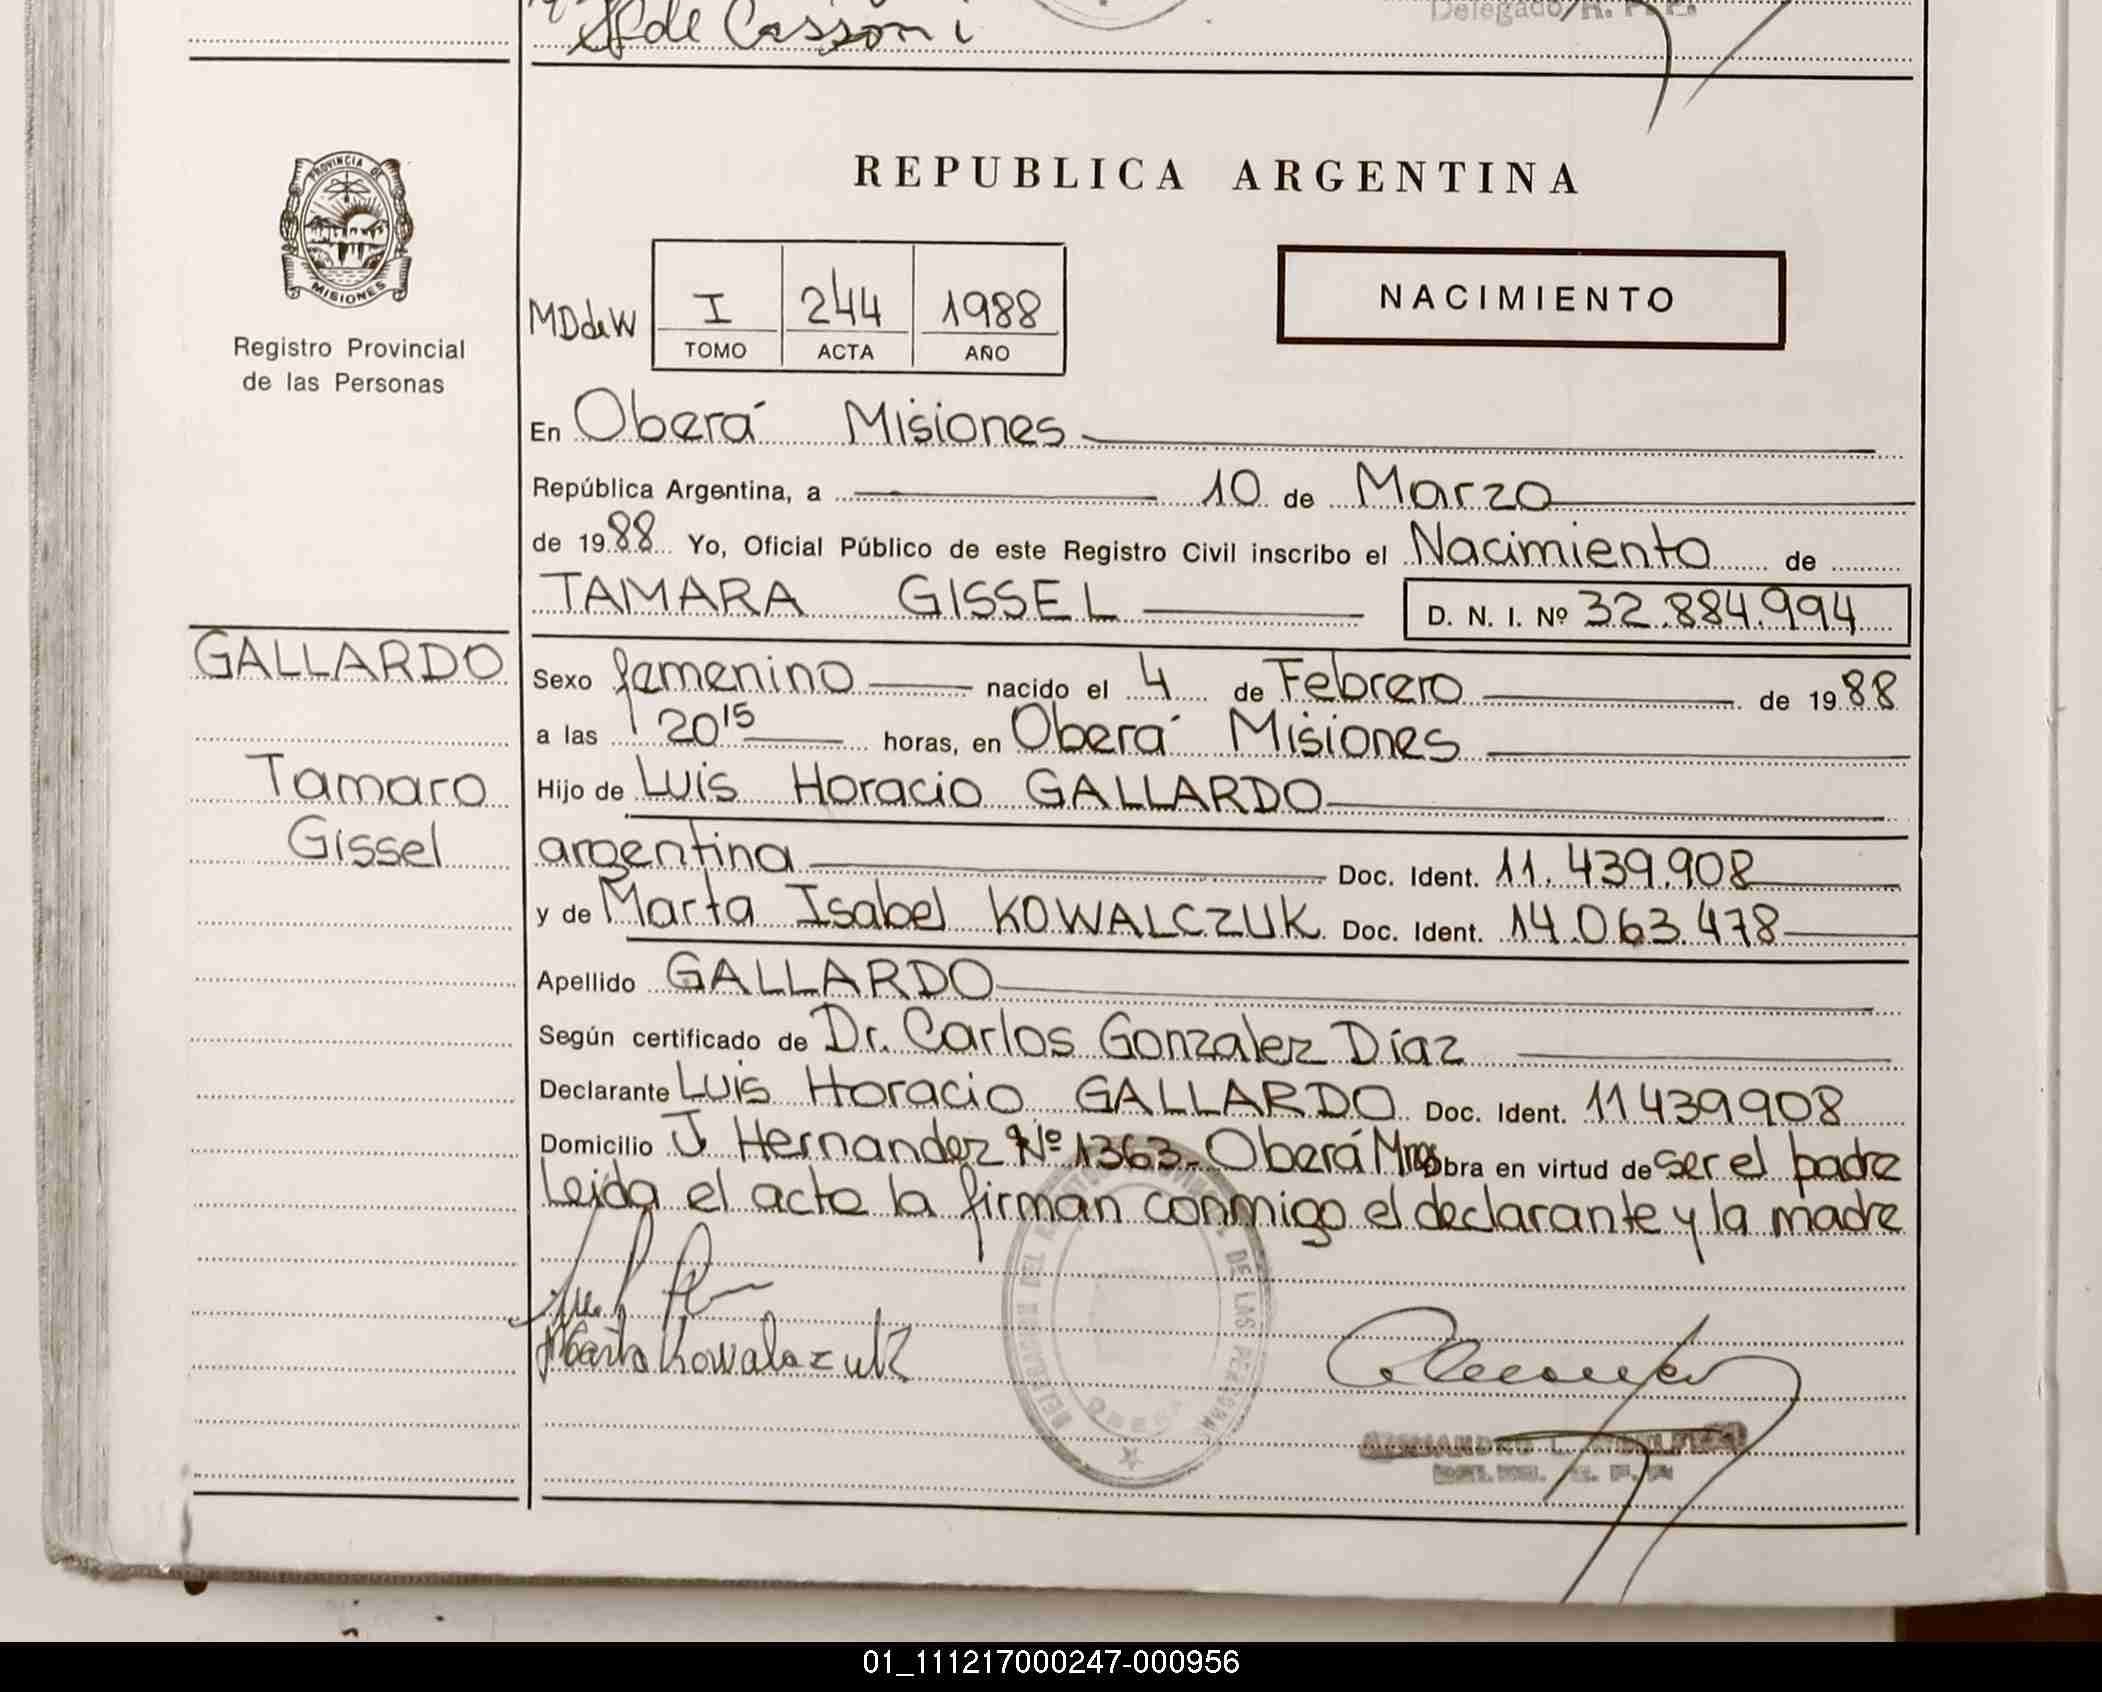 de Cassoni
Delegado R. P. P.
PROVINCIA DE
MISIONES
Registro Provincial
de las Personas
REPUBLICA ARGENTINA
MDdeW
I 244 1988
TOMO ACTA AÑO
NACIMIENTO
En Oberá Misiones
República Argentina, a 10 de Marzo
de 1988 Yo, Oficial Público de este Registro Civil inscribo el Nacimiento de
TAMARA GISSEL D. N. I. Nº 32.884.994
GALLARDO
Tamara
Gissel
Sexo femenino nacido el 4 de Febrero de 1988
a las 20 15 horas, en Oberá Misiones
Hijo de Luis Horacio GALLARDO
argentina Doc. Ident. 11.439.908
y de Marta Isabel KOWALCZUK Doc. Ident. 14.063.478
Apellido GALLARDO
Según certificado de Dr. Carlos Gonzalez Díaz
Declarante Luis Horacio GALLARDO Doc. Ident. 11439908
Domicilio J. Hernandez Nº 1363- Oberá Mnes Obra en virtud de ser el padre
Leida el acta la firman conmigo el declarante y la madre
Marta Kowalczuk
DE LAS PERSONAS
OBERA
01_111217000247-000956